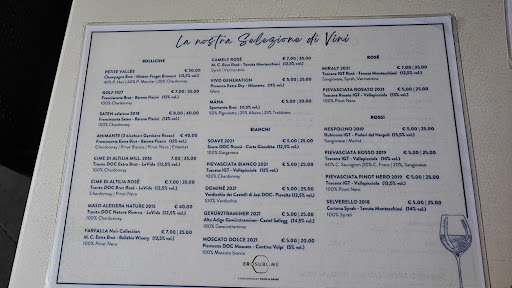 La nostra Selezione di Vini
BOLLICINE
PETITE VALLÉE € 50.00
Champagne Brut - (12,5% vol.)
40% P. Noir | 40% P. Meunier | 20% Chardonnay
GOLF 1927 € 7.00 | 35.00
Franciacorta Brut - Barone Pizzini (12,5% vol.)
100% Chardonnay
SATEN edizione 2018 € 40.00
Franciacorta Saten - Barone Pizzini (12,5% vol.)
100% Chardonnay
ANIMANTE (3 bicchieri Gambero Rosso) € 40.00
Franciacorta Extra Brut - Barone Pizzini (12% vol.)
Chardonnay | Pinot Nero | Pinot Bianco |
CIME DI ALTILIA MILL. 2016 7.00 | 35.00
Trento DOC Extra Brut - LaVide (12,5% vol.)
100% Chardonnay
CIME DI ALTILIA ROSÉ € 7.00 | 35.00
Trento DOC Brut Rosé - LaVide (12,5% vol.)
Chardonnay | Pinot Nero
MASO ALESIERA NATURE 2015 € 40.00
Trento DOC Nature Riserva - LaVide (12,5% vol.)
100% Chardonnay
FARFALLA Noir Collection € 40.00
M. C. Extra Brut - Ballabio Winery (12,5% vol.)
100% Pinot Nero
CAMELY ROSÉ € 7.00 | 35.00
M. C. Brut Rosé - Tenuta Montecchiesi (12,5% vol.)
Syrah | Vermentino
VIVO GENERATION € 5.00 | 25.00
Prosecco Extra Dry - (11% vol.)
Glera
MÁNA € 5.00 | 20.00
Spumante Brut (12% vol.)
50% Pignoletto | 25% Albana | 25% Trebbiano
BIANCHI
SOAVE 2021 € 5.00 | 25.00
Soave DOC - Corte Giacobbe (12,5% vol.)
100% Garganega
PIEVASCIATA BIANCO 2021 € 5.00 | 25.00
Toscana IGT - Vallepicciola (13% vol.)
100% Chardonnay
DOMINÈ 2021 € 5.00 | 25.00
Verdicchio dei Castelli di Jesi DOC - Pievalta (12,5% vol.)
100% Verdicchio
GEWÜRZTRAMINER 2021 € 5.00 | 25.00
Alto Adige Gewürztraminer - Castel Sallegg (14,5% vol.)
100% Gewürztraminer
MOSCATO DOLCE 2021 € 5.00 | 20.00
Piemonte DOC Moscato - Cantina Volpi (5% vol.)
100% Moscato bianco
EROSUBLIME
ROSÉ
MIRALY 2021 € 5.00 | 25.00
Toscana IGT Rosé - Tenuta Montecchiesi (12,5% vol.)
Sangiovese, Syrah, Vermentino
PIEVASCIATA ROSATO 2021 € 5.00 | 25.00
Toscana IGT - Vallepicciola (13% vol.)
100% Pinot Nero
ROSSI
NESPOLINO 2019 € 5.00 | 25.00
Rubicone IGT - Poderi dal Nespoli (13,5% vol.)
Sangiovese | Merlot
PIEVASCIATA ROSSO 2019 € 5.00 | 25.00
Toscana IGT - Vallepicciola (14% vol.)
PIEVASCIATA PINOT NERO 2019 € 5.00 | 25.00
Toscana IGT - Vallepicciola (13% vol.)
100% Pinot Nero
SELVERELLO 2018 € 5.00 | 25.00
Cortona Syrah - Tenuta Montecchiesi (14% vol.)
100% Syrah